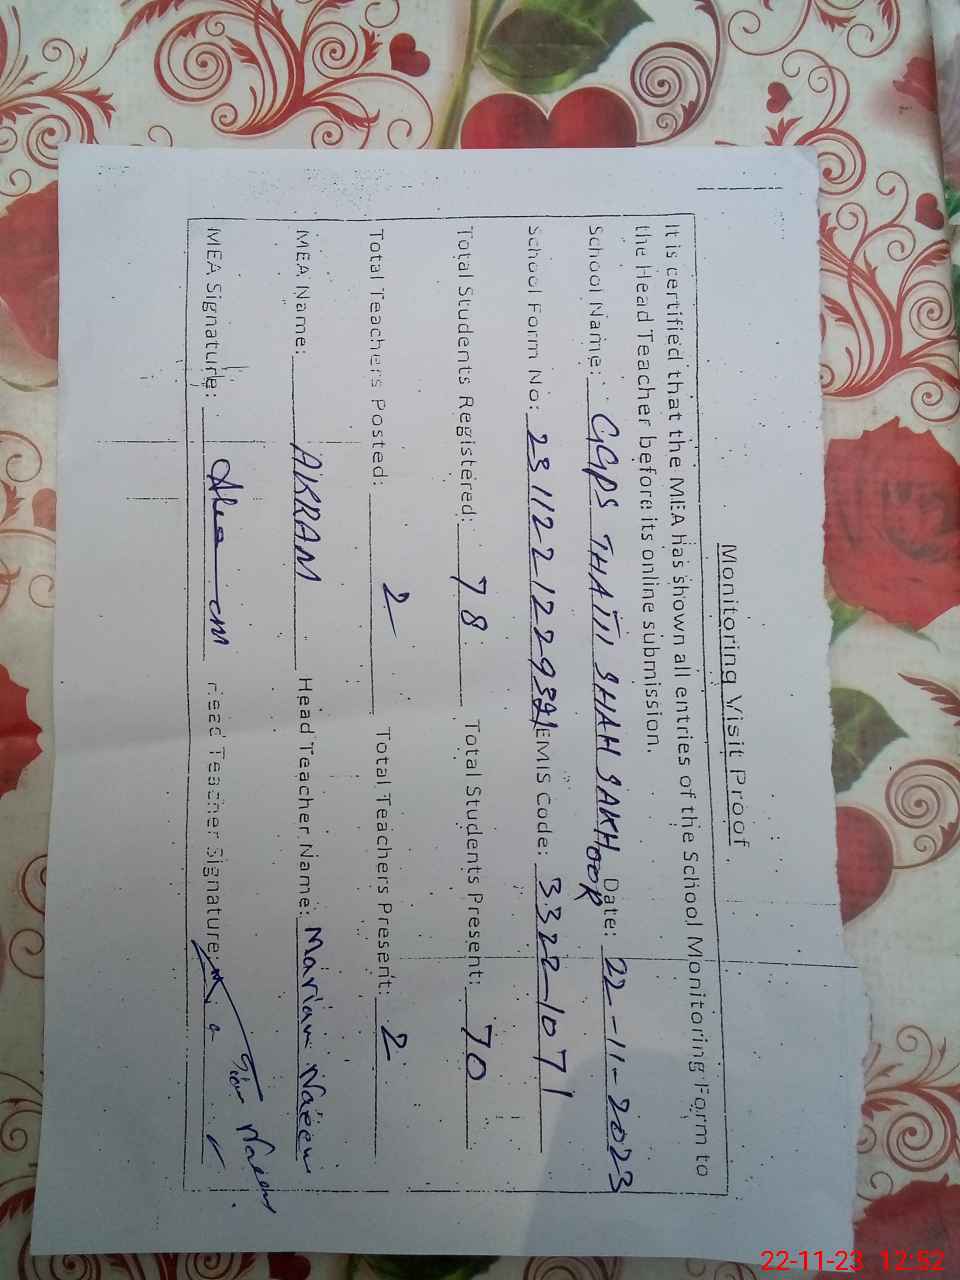 Monitoring Visit Proof
It is certified that the MEA has shown all entries of the School Monitoring Form to
the Head Teacher before its online submission.
School Name: GGPS THATTI SHAH SAKHOOR Date: 22-11-2023
School Form No: EMIS Code: 33221071
Total Students Registered: 78 Total Students Present: 70
Total Teachers Posted: 2 Total Teachers Present: 2
MEA Name: AKRAM Head Teacher Name: Mariam Naeem
MEA Signature: Head Teacher Signature
22-11-23 12:52